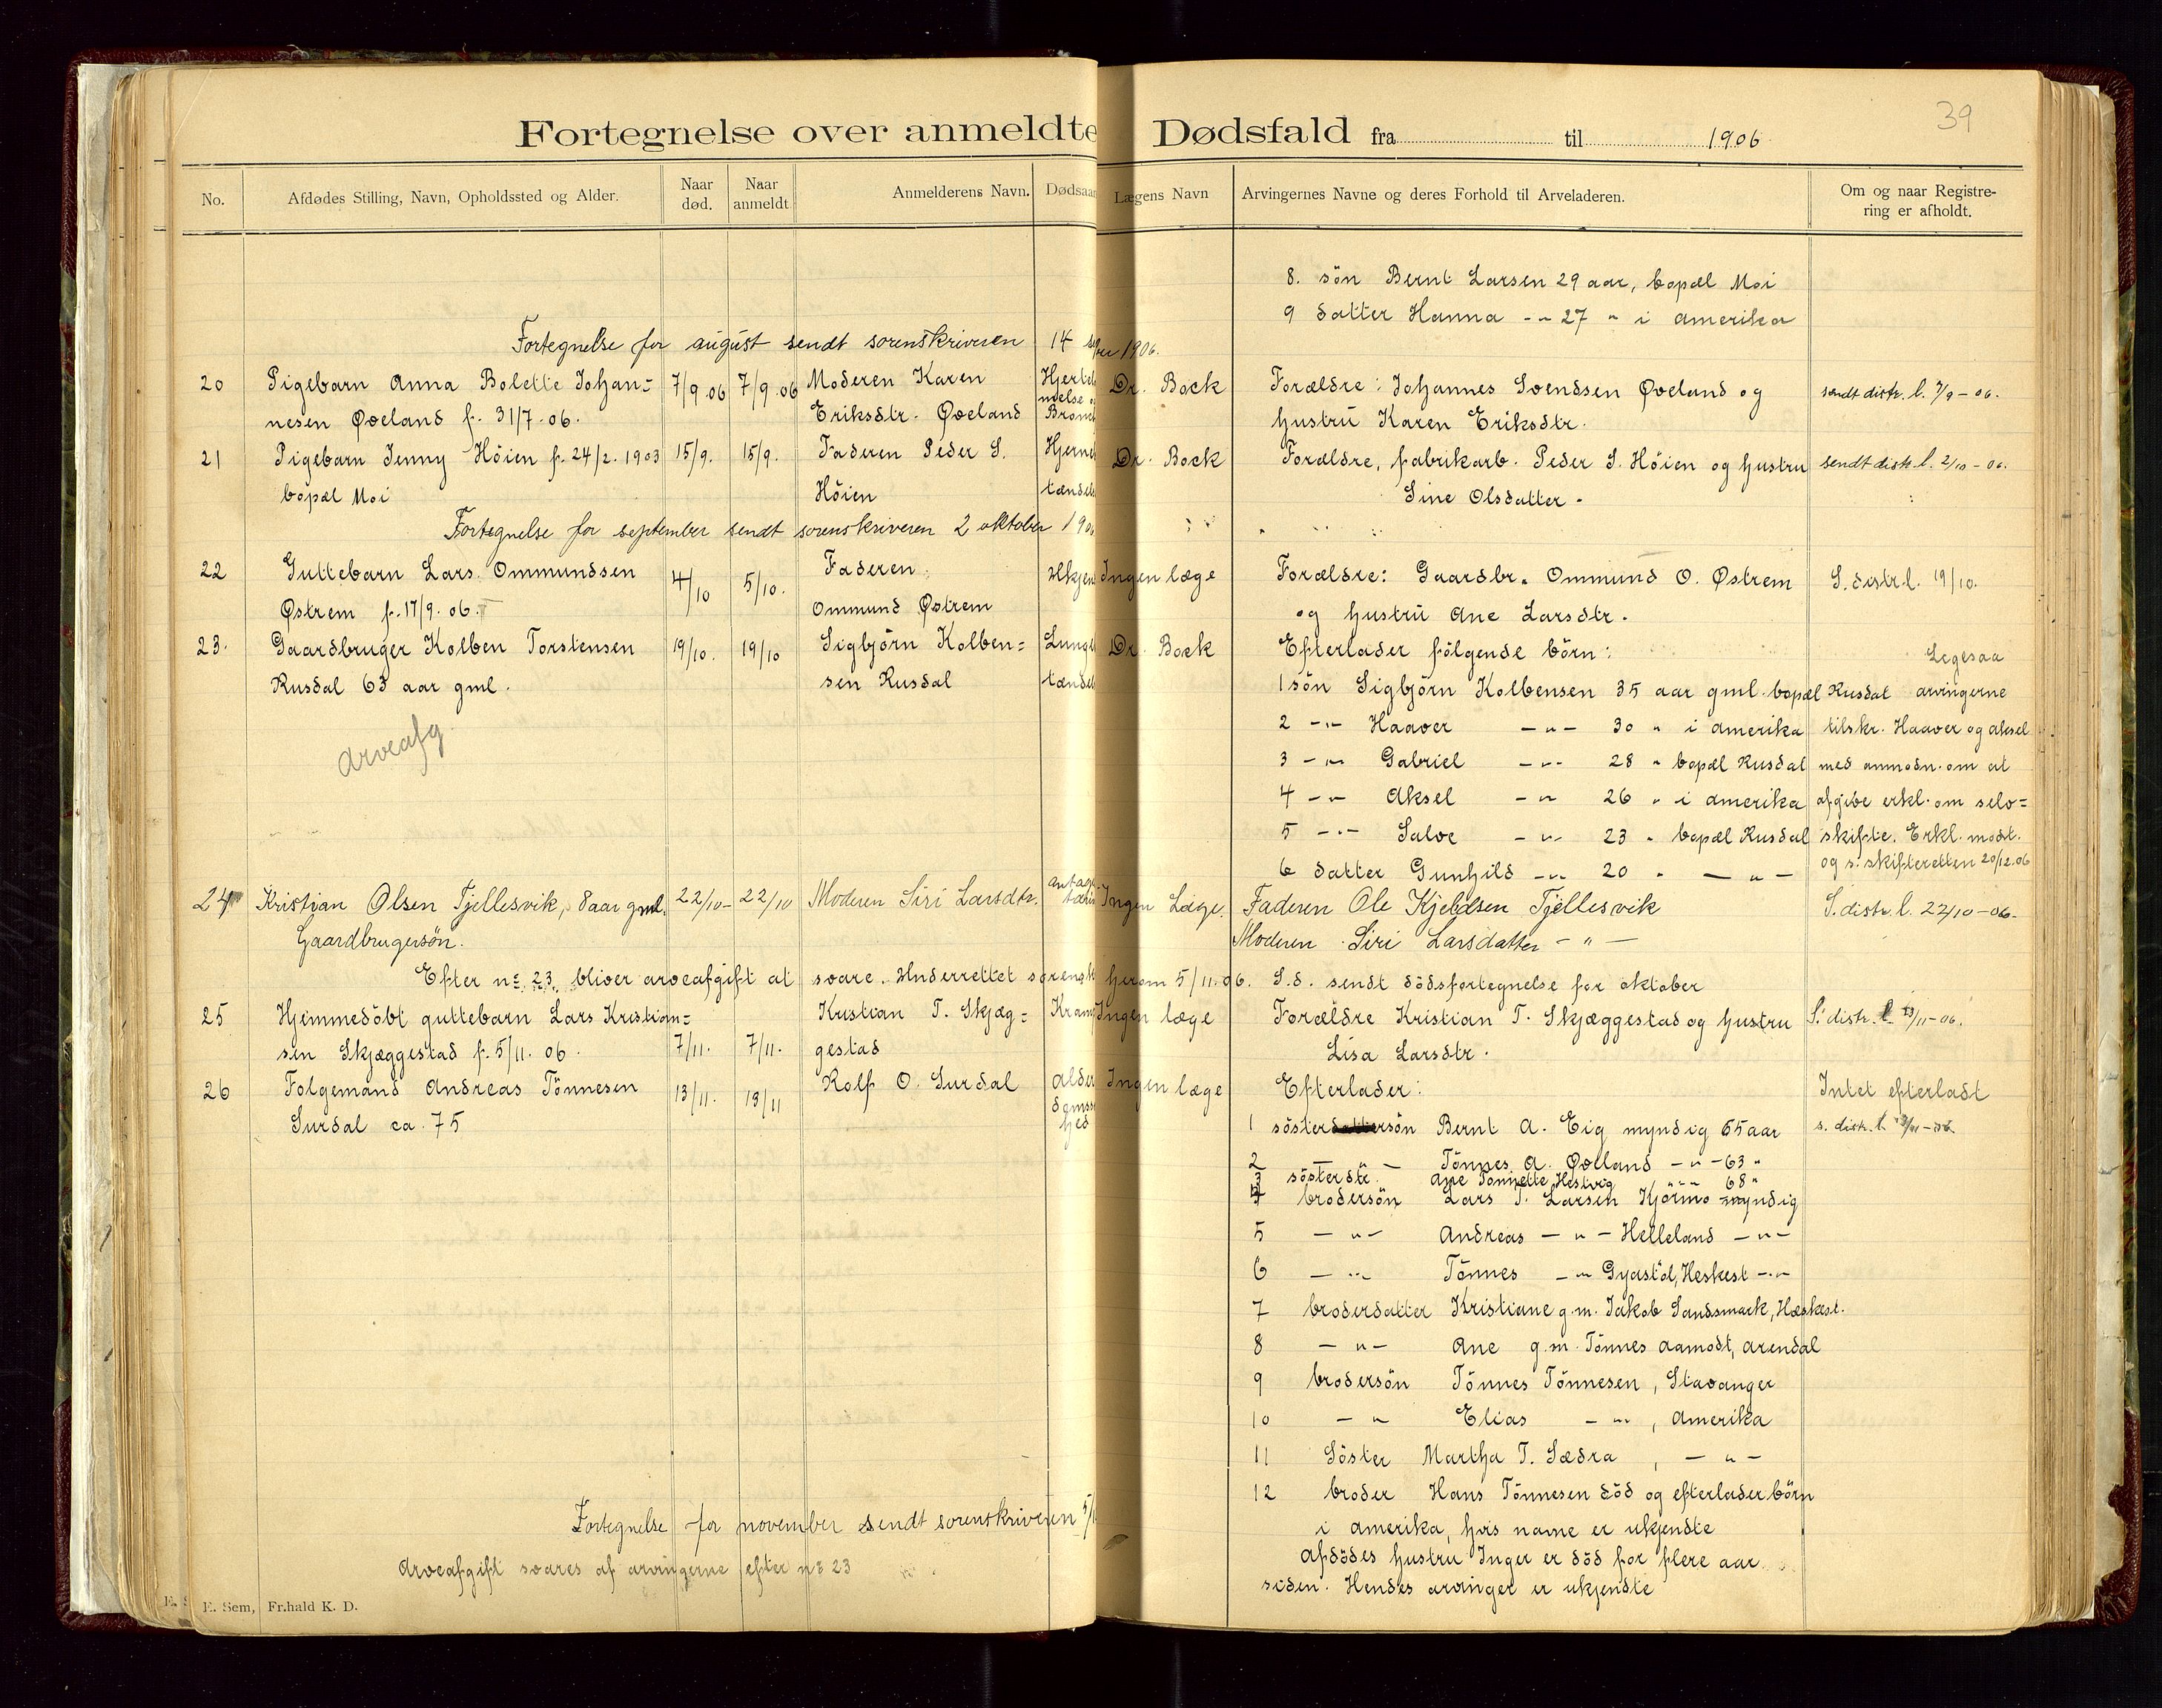 39
Fortegnelse over anmeldte Dødsfald fra til 1906
No. Afdødes Stilling, Navn, Opholdssted og Alder. Naar død. Naar anmeldt Anmelderens Navn. Dødsaar Lægens Navn Arvingernes Navne og deres Forhold til Arveladeren. Om og naar Registrering er afholdt.
8. sön Bernt Larsen 29 aar, bopæl Moi
9 datter Hanna -"- 27 " i Amerika
Fortegnelse for august sendt sorenskriveren 14 1906.
20 Pigebarn Anna Bolette Johan= 7/9 06 7/9 06 Moderen Karen Dr. Bock Forældre: Johannes Svendsen Qveland og sendt distr. l. 7/9 - 06.
nesen Qveland f. 31/7. 06. Eriksdtr. Qveland hustru Karen Eriksdtr.
21 Pigebarn Jenny Höien f. 24/2. 1903 15/9. 15/9. Faderen Peder S. Dr. Bock Forældre, fabrikarb. Peder S. Höien og hustru sendt distr. l. 2/10 - 06.
bopæl Moi Höien Sine Olsdatter.
Fortegnelse for september sendt sorenskriveren 2 oktober 190
22 Guttebarn Lars Ommundsen 4/10 5/10. Faderen Ingen læge Forældre: Gaardbr. Ommund O. Østrem S. distr. l. 19/10.
Østrem f. 17/9. 06. Ommund Østrem og hustru Ane Larsdtr.
23. Gaardbruger Kolben Torstensen 19/10. 19/10 Sigbjörn Kolben= Dr. Bock Efterlader fölgende börn:
Rusdal 63 aar gml. sen Rusdal
1 sön Sigbjörn Kolbensen 35 aar gml. bopæl Rusdal arvingerne
Arveafg.
2 -"- Haaver -"- 30 " i Amerika tilskr. Haaver og Aksel
3 -"- Gabriel -"- 28 " bopæl Rusdal med anmodn. om at
4 -"- Aksel -"- 26 " i Amerika afgive erkl. om selv=
5 -"- Salve -"- 23 " bopæl Rusdal skifte. Erkl. modt.
6 datter Gunhild -"- 20 " -"- og s. skifteretten 20/12. 06
24 Kristian Olsen Tjellesvik, 8 aar gml. 22/10 - 22/10 Moderen Siri Larsdtr. Ingen Læge. Faderen Ole Kjeldsen Tjellesvik S. distr. l. 22/10 - 06.
Gaardbrugersön. Moderen Siri Larsdatter -"-
Efter no 23 bliver arveafgift at svare. Underrettet herom 5/11. 06. S.d. sendt dödsfortegnelse for oktober
25 Hjemmedöbt guttebarn Lars Kristian= 7/11. 7/11. Kristian T. Skjæg= Ingen læge Forældre Kristian T. Skjæggestad og hustru S. distr. l. 13/11 - 06.
sen Skjæggestad f. 5/11. 06. gestad Lisa Larsdtr.
26 Folgemand Andreas Tönnesen 13/11. 13/11 Rolf O. Surdal Alder Ingen læge Efterlader: Intet efterladt
Surdal ca. 75 doms hed
1 söstersön Bernt A. Eig myndig 65 aar s. distr. l.
2 -"- Tönnes A. Qveland -"- 63 "
3 sösterdtr. Ane Tonnette Hestvig -"- 68 "
4 brodersön Lars T. Larsen Kjörmo myndig
5 -"- Andreas -"- Helleland -"-
6 -"- Tönnes -"- Gyastöl, Heskest -"-
7 broderdatter Kristiane g.m. Jakob Sandsmark, Heskest.
8 -"- Ane g.m. Tönnes Aamodt, Arendal
9 brodersön Tönnes Tönnesen, Stavanger
10 -"- Elias -"- , Amerika
11 Söster Martha T. Sædra , -"-
12 broder Hans Tönnesen död og efterlader börn
i Amerika, hvis navne er ukjendte
Afdödes hustru Inger er död for flere aar
siden. Hendes arvinger er ukjendte
Fortegnelse for november sendt sorenskriveren
Arveafgift svares af arvingerne efter no 23
E. Sem, Fr.hald K. D.